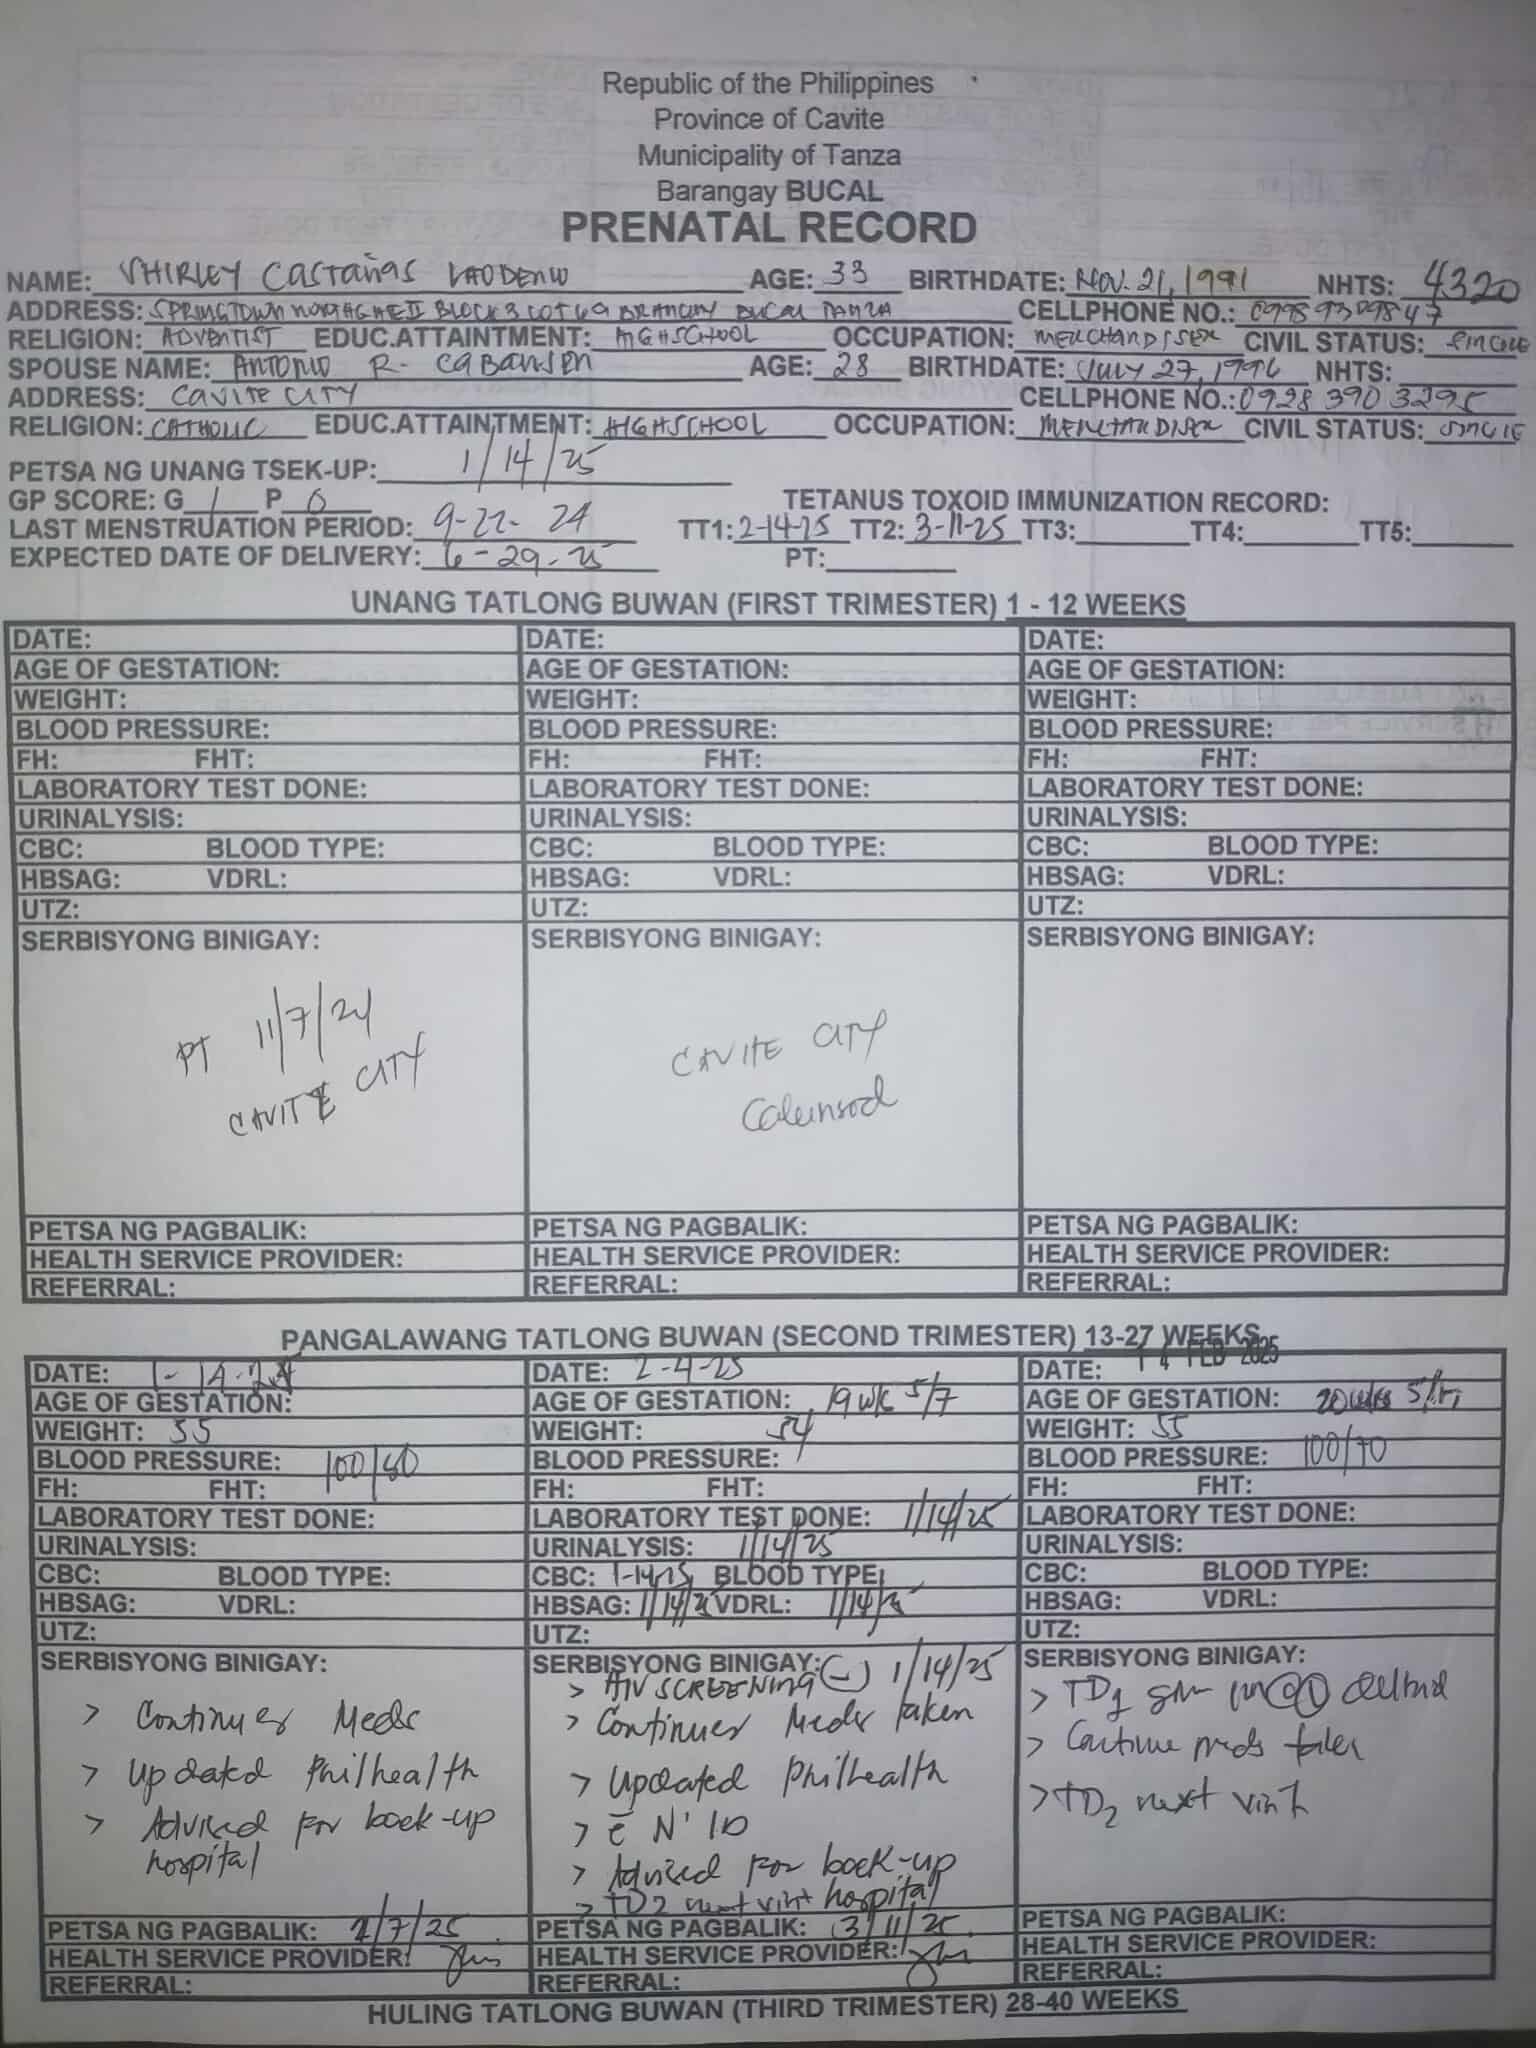 Republic of the Philippines
Province of Cavite
Municipality of Tanza
Barangay BUCAL
PRENATAL RECORD
NAME: SHIRLEY Castañas AGE: 33 BIRTHDATE: NOV. 21, 1991 NHTS: 4320
ADDRESS: SPRINGTOWN BLOCK 3 LOT 69 BUCAL TANZA CELLPHONE NO.: 09989309847
RELIGION: ADVENTIST EDUC.ATTAINTMENT: HIGHSCHOOL OCCUPATION: MERCHANDISER CIVIL STATUS: SINGLE
SPOUSE NAME: ANTONIO R. CABANSEN AGE: 28 BIRTHDATE: JULY 27, 1996 NHTS:
ADDRESS: CAVITE CITY CELLPHONE NO.: 0928 390 3295
RELIGION: CATHOLIC EDUC.ATTAINTMENT: HIGHSCHOOL OCCUPATION: MERCHANDISER CIVIL STATUS: SINGLE
PETSA NG UNANG TSEK-UP: 1/14/25
GP SCORE: G 1 P 0 TETANUS TOXOID IMMUNIZATION RECORD:
LAST MENSTRUATION PERIOD: 9-22-24 TT1: 2-14-25 TT2: 3-11-25 TT3: TT4: TT5:
EXPECTED DATE OF DELIVERY: 6-29-25 PT:
UNANG TATLONG BUWAN (FIRST TRIMESTER) 1 - 12 WEEKS
DATE: DATE: DATE:
AGE OF GESTATION: AGE OF GESTATION: AGE OF GESTATION:
WEIGHT: WEIGHT: WEIGHT:
BLOOD PRESSURE: BLOOD PRESSURE: BLOOD PRESSURE:
FH: FHT: FH: FHT: FH: FHT:
LABORATORY TEST DONE: LABORATORY TEST DONE: LABORATORY TEST DONE:
URINALYSIS: URINALYSIS: URINALYSIS:
CBC: BLOOD TYPE: CBC: BLOOD TYPE: CBC: BLOOD TYPE:
HBSAG: VDRL: HBSAG: VDRL: HBSAG: VDRL:
UTZ: UTZ: UTZ:
SERBISYONG BINIGAY: SERBISYONG BINIGAY: SERBISYONG BINIGAY:
PT 11/7/24 CAVITE CITY
CAVITE CITY
PETSA NG PAGBALIK: PETSA NG PAGBALIK: PETSA NG PAGBALIK:
HEALTH SERVICE PROVIDER: HEALTH SERVICE PROVIDER: HEALTH SERVICE PROVIDER:
REFERRAL: REFERRAL: REFERRAL:
PANGALAWANG TATLONG BUWAN (SECOND TRIMESTER) 13-27 WEEKS
DATE: 1-14-24 DATE: 2-4-25 DATE: 14 FEB 2025
AGE OF GESTATION: AGE OF GESTATION: 19 wk 5/7 AGE OF GESTATION: 20 wks 5/7
WEIGHT: 55 WEIGHT: 54 WEIGHT: 55
BLOOD PRESSURE: 100/60 BLOOD PRESSURE: BLOOD PRESSURE: 100/70
FH: FHT: FH: FHT: FH: FHT:
LABORATORY TEST DONE: LABORATORY TEST DONE: 1/14/25 LABORATORY TEST DONE:
URINALYSIS: URINALYSIS: 1/14/25 URINALYSIS:
CBC: BLOOD TYPE: CBC: 1-14-25 BLOOD TYPE: CBC: BLOOD TYPE:
HBSAG: VDRL: HBSAG: 1/14/25 VDRL: 1/14/25 HBSAG: VDRL:
UTZ: UTZ: UTZ:
SERBISYONG BINIGAY: SERBISYONG BINIGAY: SERBISYONG BINIGAY:
> Continues Meds
> Updated Philhealth
> Advised for back-up
hospital
> HIV SCREENING (-) 1/14/25
> Continues Meds taken
> Updated Philhealth
> c̄ N' ID
> Advised for back-up
hospital
> TD2 next visit
> TD1 given
> Continue meds taken
> TD2 next visit
PETSA NG PAGBALIK: 2/7/25 PETSA NG PAGBALIK: 3/11/25 PETSA NG PAGBALIK:
HEALTH SERVICE PROVIDER: HEALTH SERVICE PROVIDER: HEALTH SERVICE PROVIDER:
REFERRAL: REFERRAL: REFERRAL:
HULING TATLONG BUWAN (THIRD TRIMESTER) 28-40 WEEKS